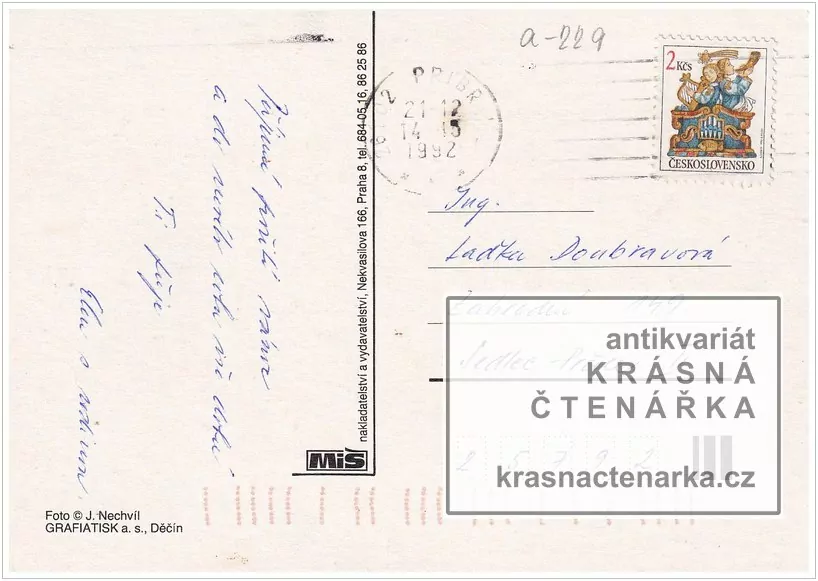 a-229
2 Kčs
ČESKOSLOVENSKO
PŘÍBR
21-12
1992
Ing.
Laďka Doubravová
Zahradní 149
Sedlec
2 5 7 9 2
antikvariát
KRÁSNÁ
ČTENÁŘKA
krasnactenarka.cz
Příjemné prožití vánoc
a do nového roku vše dobré
Ti přeje
s rodinou
nakladatelství a vydavatelství, Nekvasilova 166, Praha 8, tel. 684 05 16, 86 25 86
MiŠ
Foto © J. Nechvíl
GRAFIATISK a. s., Děčín